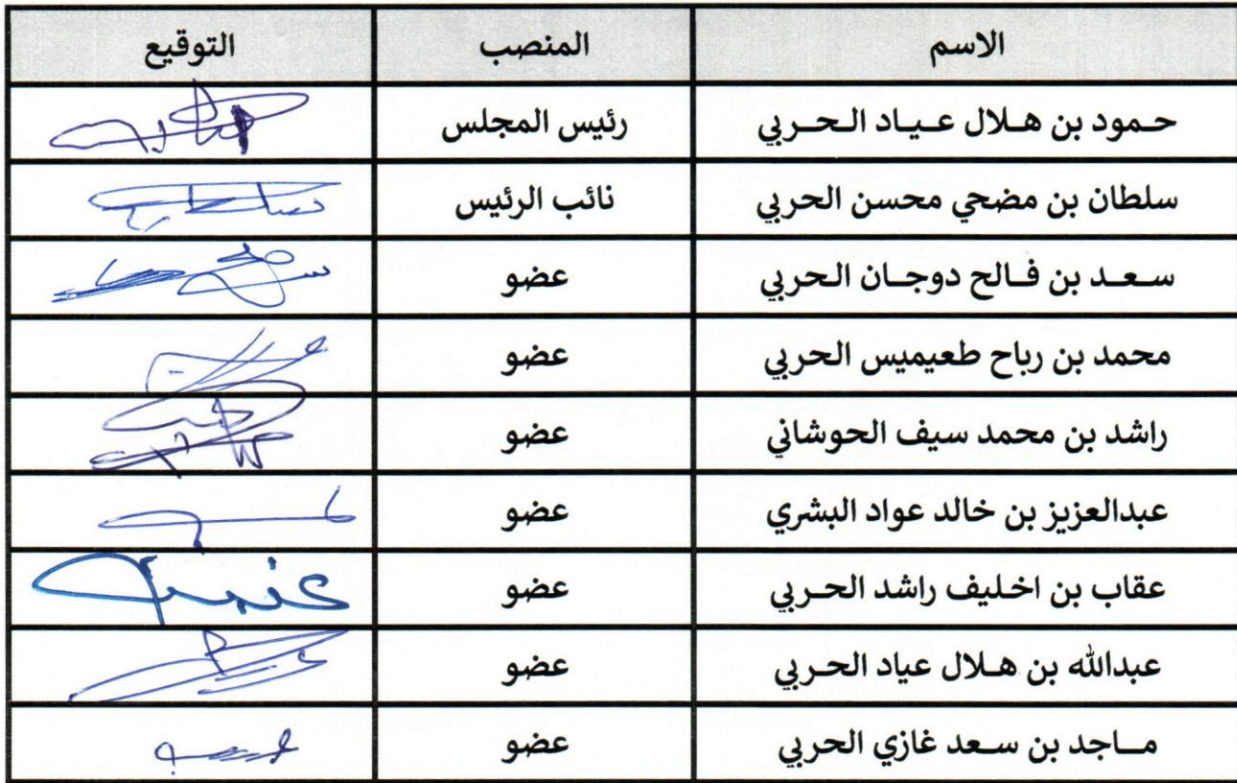 الاسم المنصب التوقيع
حمود بن هلال عياد الحربي رئيس المجلس
سلطان بن مضحي محسن الحربي نائب الرئيس
سعد بن فالح دوجان الحربي عضو
محمد بن رباح طعيميس الحربي عضو
راشد بن محمد سيف الحوشاني عضو
عبدالعزيز بن خالد عواد البشري عضو
عقاب بن اخليف راشد الحربي عضو
عبدالله بن هلال عياد الحربي عضو
ماجد بن سعد غازي الحربي عضو